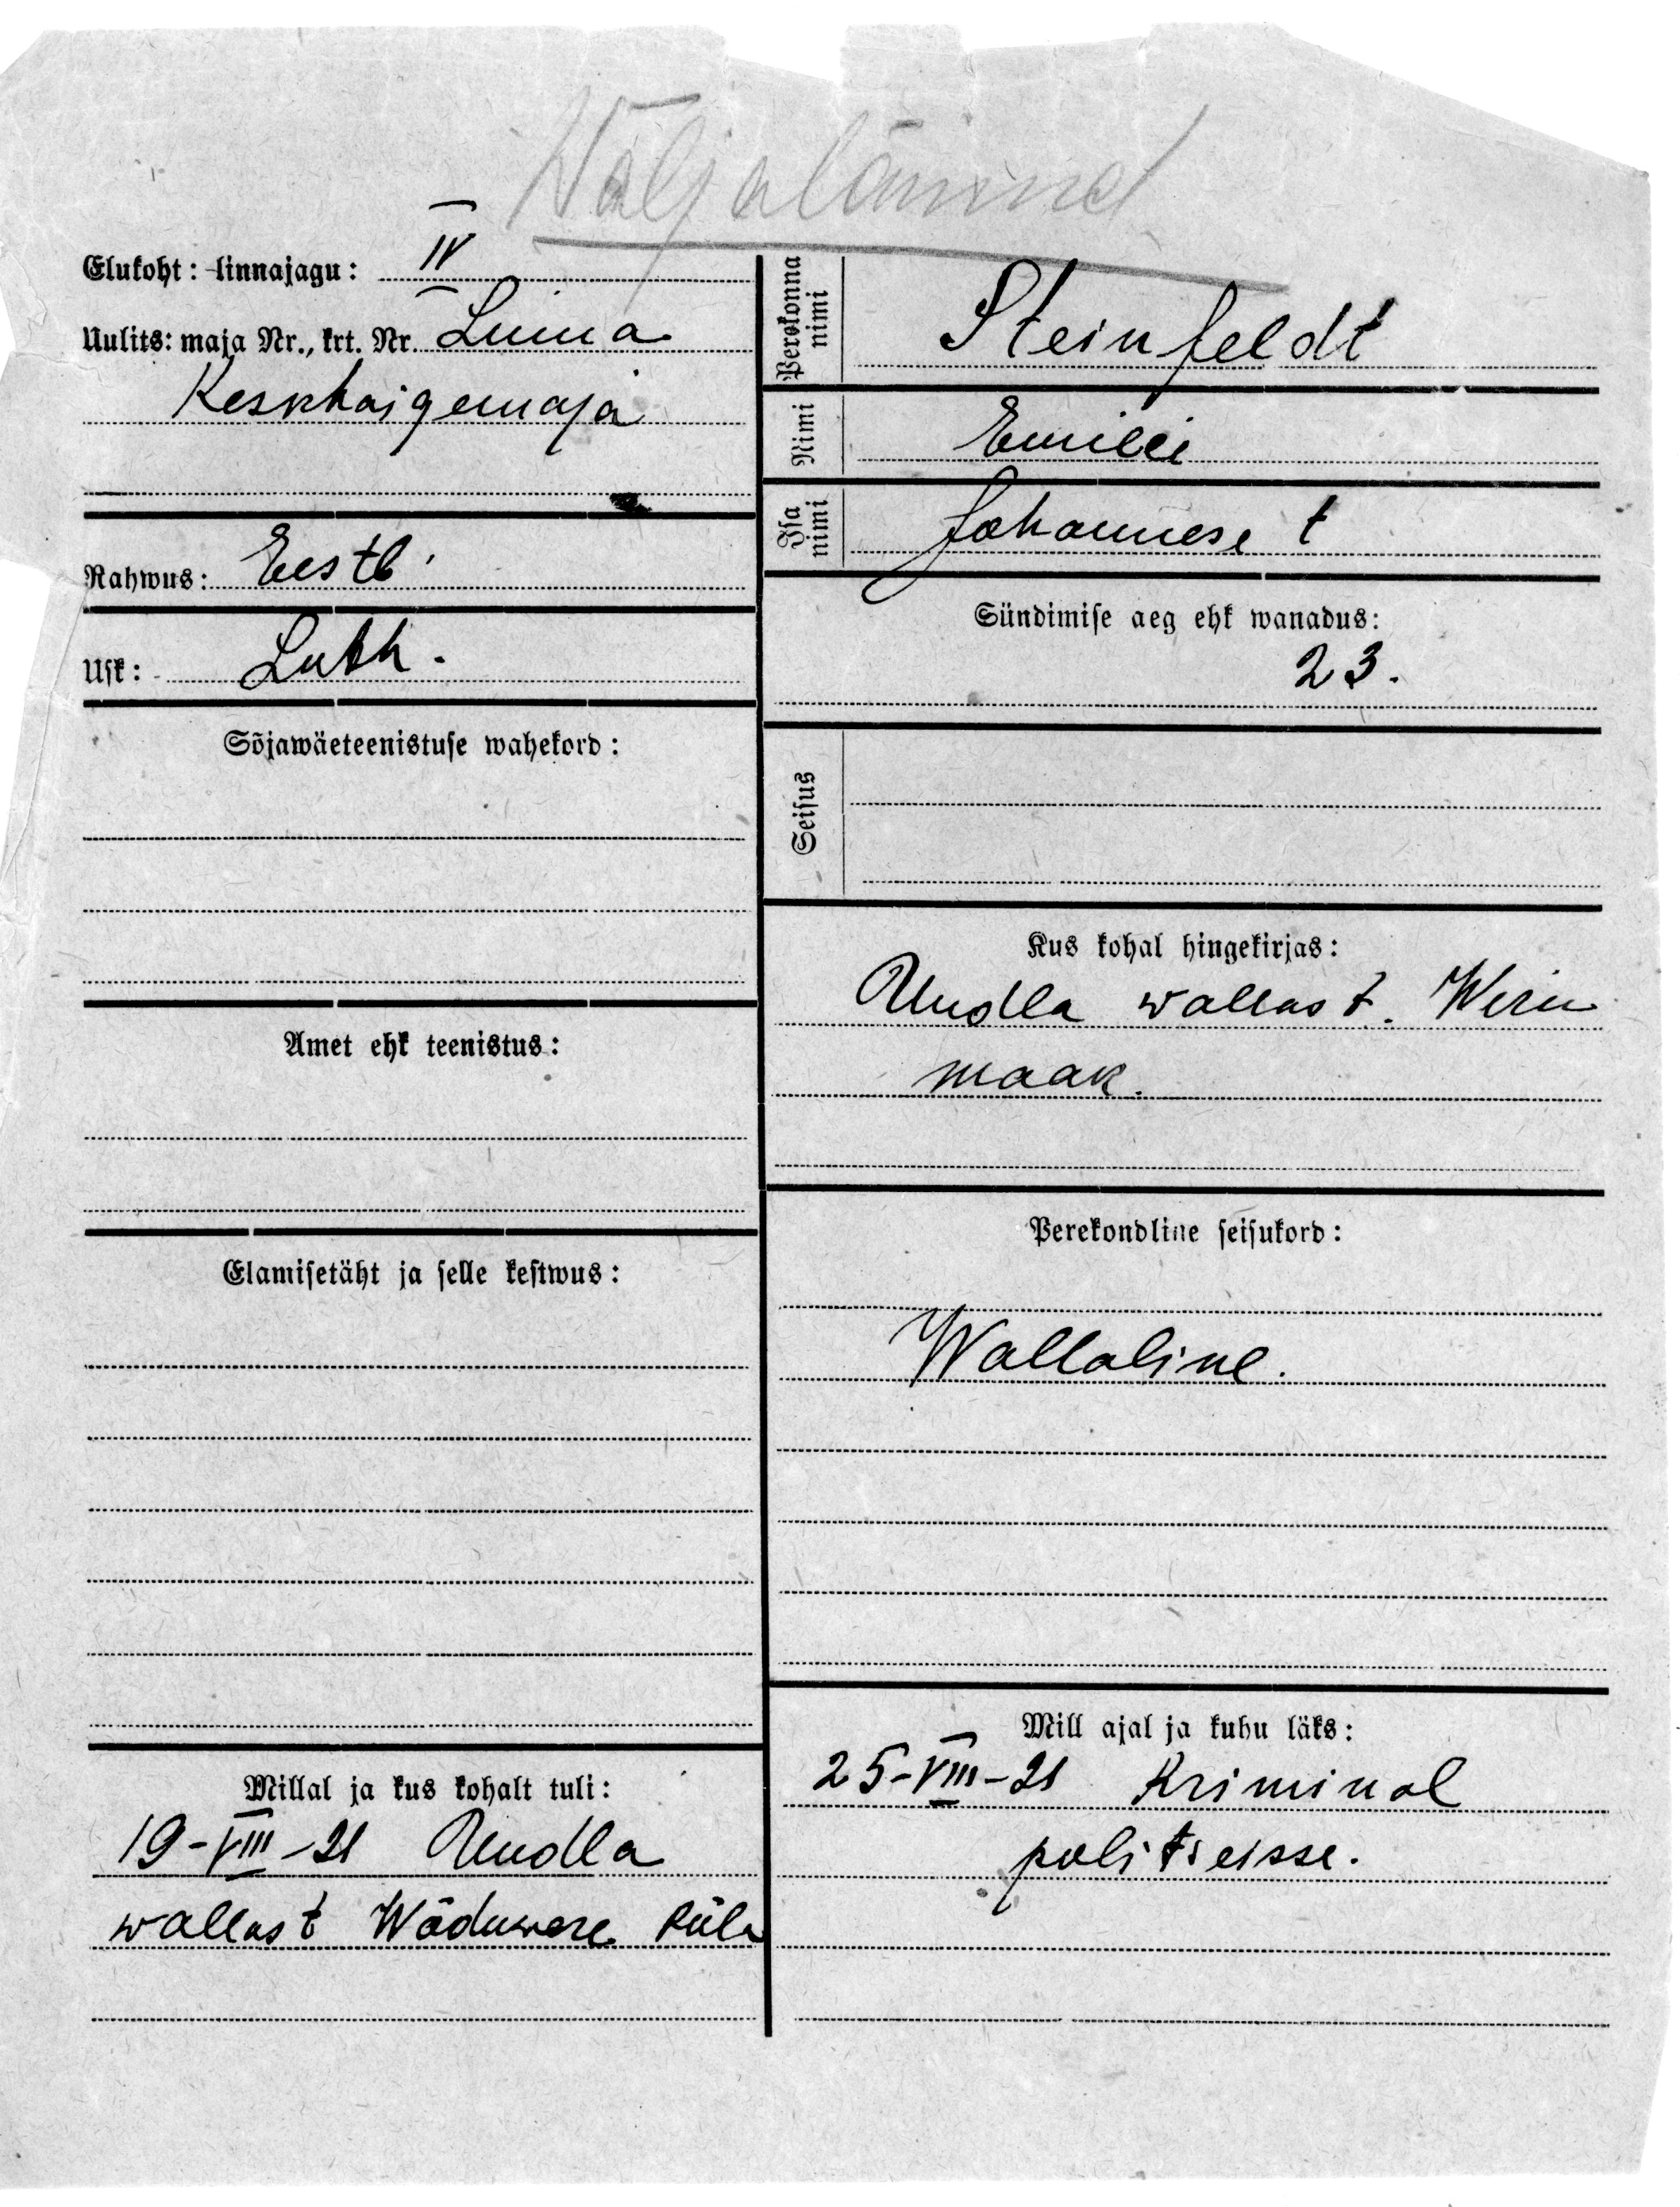 Wäljaläinud
Elukoht: linnajagu: IV
Uulits: maja Nr., krt. Nr. Linna
Keskhaigemaja
Rahwus: Eestl.
Usk: Luth.
Sõjawäeteenistuse wahekord:
Amet ehk teenistus:
Elamisetäht ja selle kestwus:
Millal ja kus kohalt tuli:
19-VIII-21 Undla
wallast Wõduwere küla
Perekonna nimi Steinfeldt
Nimi Emilie
Isa nimi Johannese t
Sündimise aeg ehk wanadus:
23.
Seisus
Kus kohal hingekirjas:
Undla wallast. Wiru
maak.
Perekondline seisukord:
Wallaline.
Mill ajal ja kuhu läks:
25-VIII-21 Kriminal
politseisse.